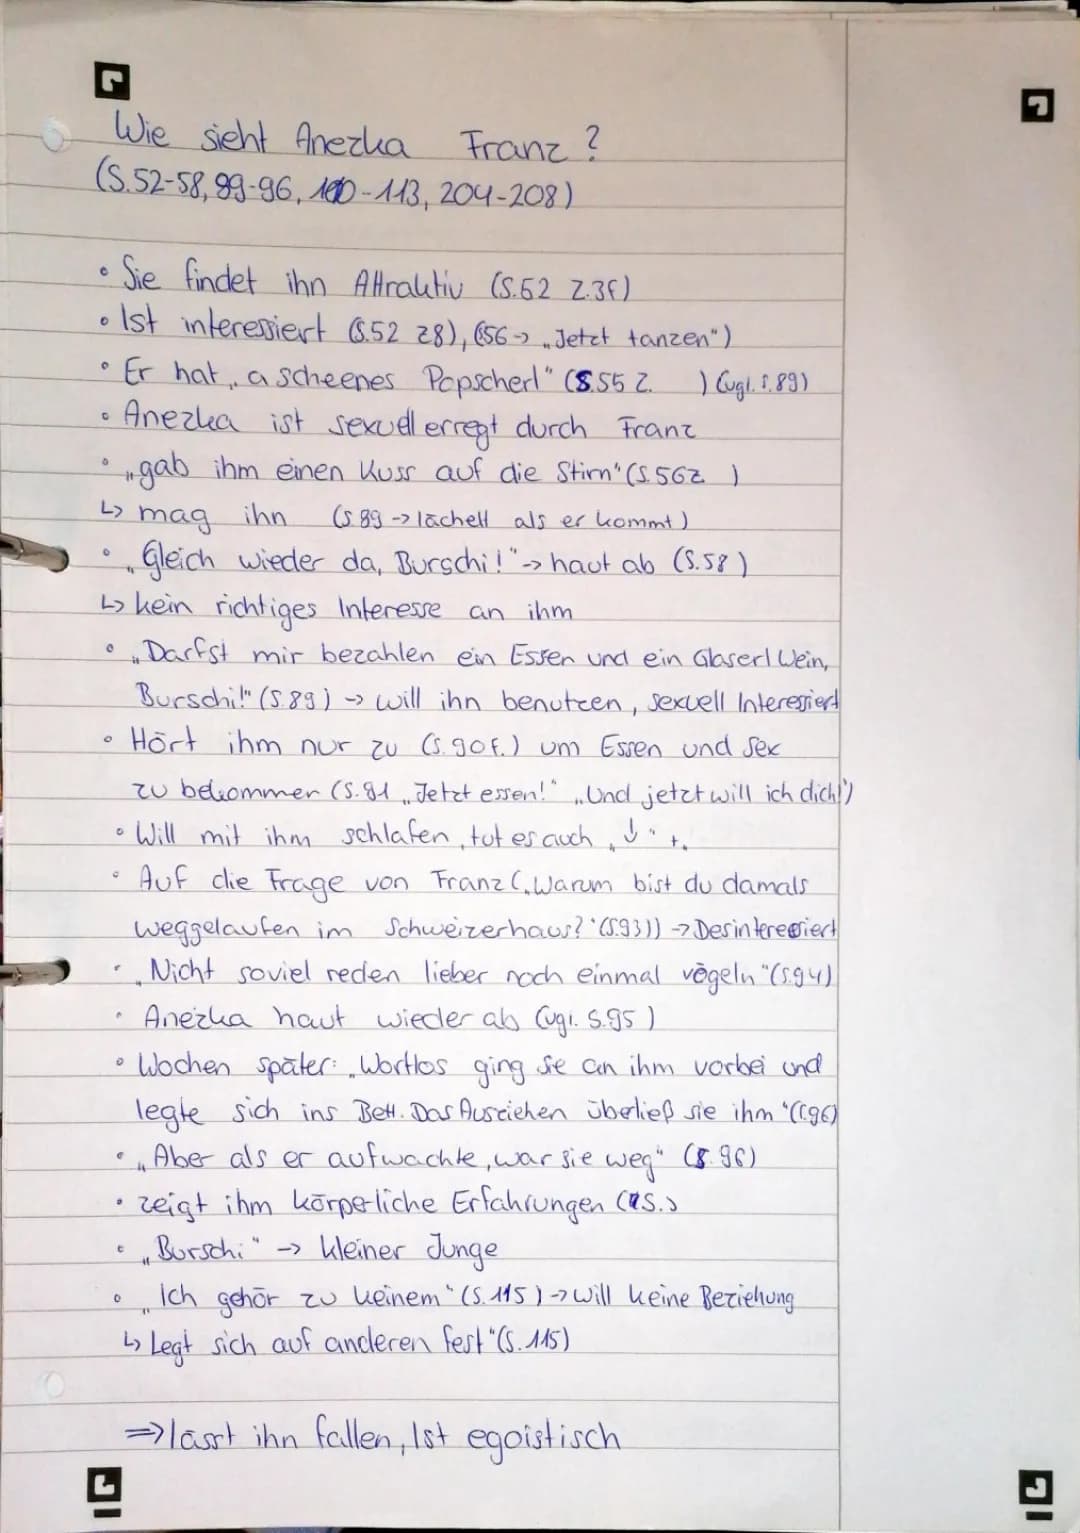 Wie sieht Anezka Franz?
(S.52-58, 89-96, 100-113, 204-208)
• Sie findet ihn Attraktiv (S.52 Z.3f)
• Ist interessiert (S.52 Z8), (S56 -> „Jetzt tanzen")
• Er hat „a scheenes Popscherl" (S.55 Z. ) (vgl. S.89)
• Anezka ist sexuell erregt durch Franz
• „gab ihm einen Kuss auf die Stirn" (S.56Z )
↳ mag ihn (S.89 -> lächelt als er kommt)
• „Gleich wieder da, Burschi!" -> haut ab (S.58)
↳ kein richtiges Interesse an ihm
• „Darfst mir bezahlen ein Essen und ein Glaserl Wein,
Burschi!" (S.89) -> will ihn benutzen, sexuell Interessiert
• Hört ihm nur zu (S.90f.) um Essen und Sex
zu bekommen (S.91 „Jetzt essen!" „Und jetzt will ich dich!")
• Will mit ihm schlafen, tut es auch
• Auf die Frage von Franz („Warum bist du damals
weggelaufen im Schweizerhaus?" (S.93)) -> Desinteressiert
• „Nicht soviel reden lieber noch einmal vögeln" (S.94)
• Anezka haut wieder ab (vgl. S.95)
• Wochen später: „Wortlos ging sie an ihm vorbei und
legte sich ins Bett. Das Ausziehen überließ sie ihm" (S.96)
• „Aber als er aufwachte, war sie weg" (S.96)
• zeigt ihm körperliche Erfahrungen
• „Burschi" -> kleiner Junge
• „Ich gehör zu keinem" (S.115) -> will keine Beziehung
↳ Legt sich auf anderen fest" (S.115)
=> lässt ihn fallen, Ist egoistisch